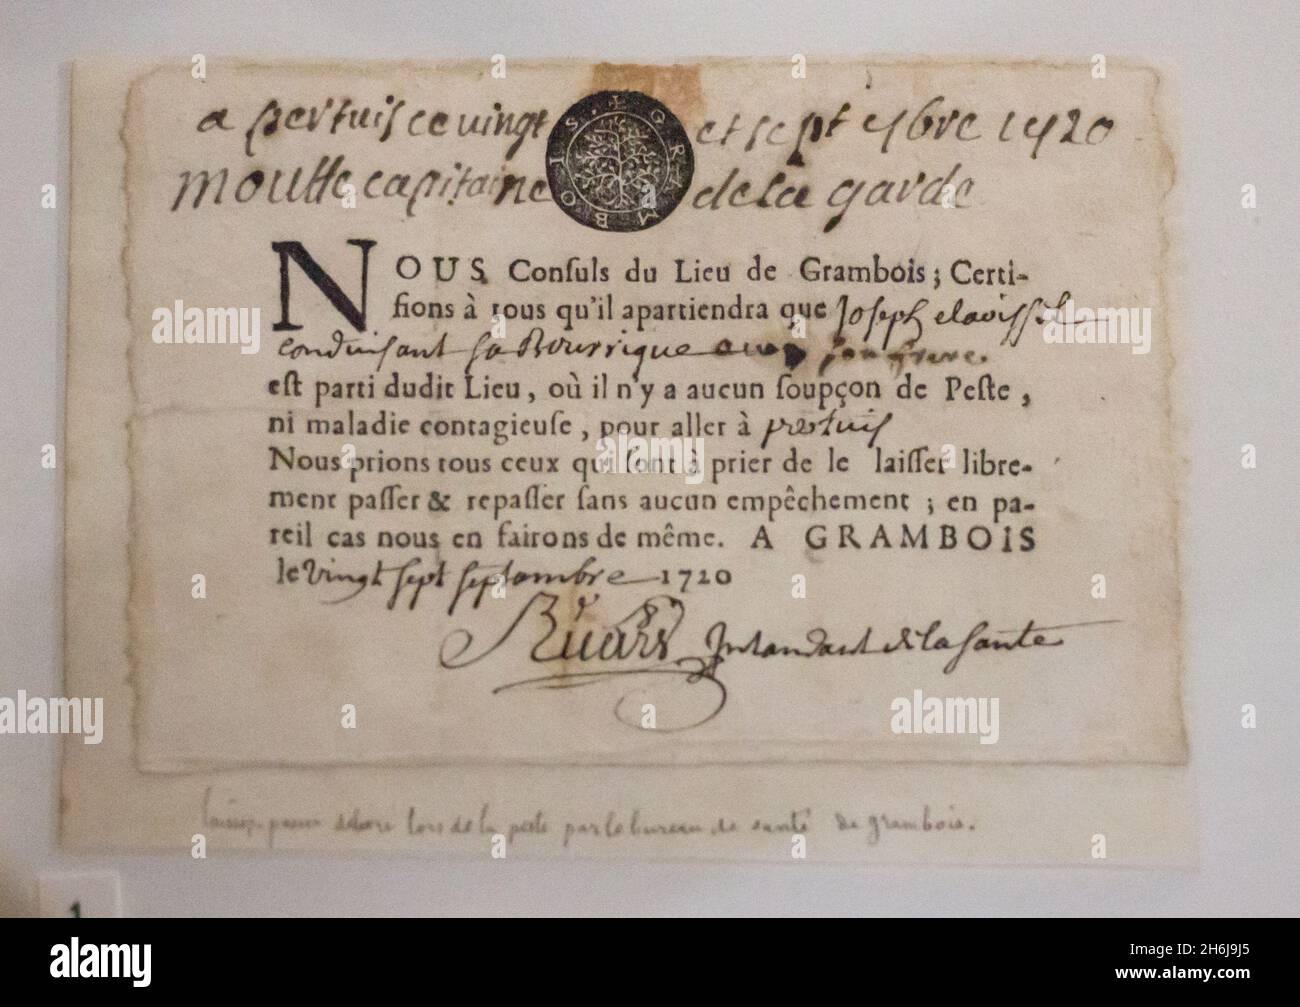 a pertuis ce vingt et sept 7bre 1720
moutte capitaine de la garde
✝ GRAMBOIS.
NOUS Conſuls du Lieu de Grambois ; Certi-
fions à tous qu'il apartiendra que Joseph
conduisant sa Bourrique
eſt parti dudit Lieu, où il n'y a aucun ſoupçon de Peſte,
ni maladie contagieuſe, pour aller à pertuis
Nous prions tous ceux qui ſont à prier de le laiſſer libre-
ment paſſer & repaſſer ſans aucun empêchement ; en pa-
reil cas nous en fairons de même. A GRAMBOIS
le vingt sept septambre 1720
Ruard Intandant de la sante
laissez-passer délivré lors de la peste par le bureau de santé de grambois.
1
alamy
Image ID: 2H6J9J5
www.alamy.com